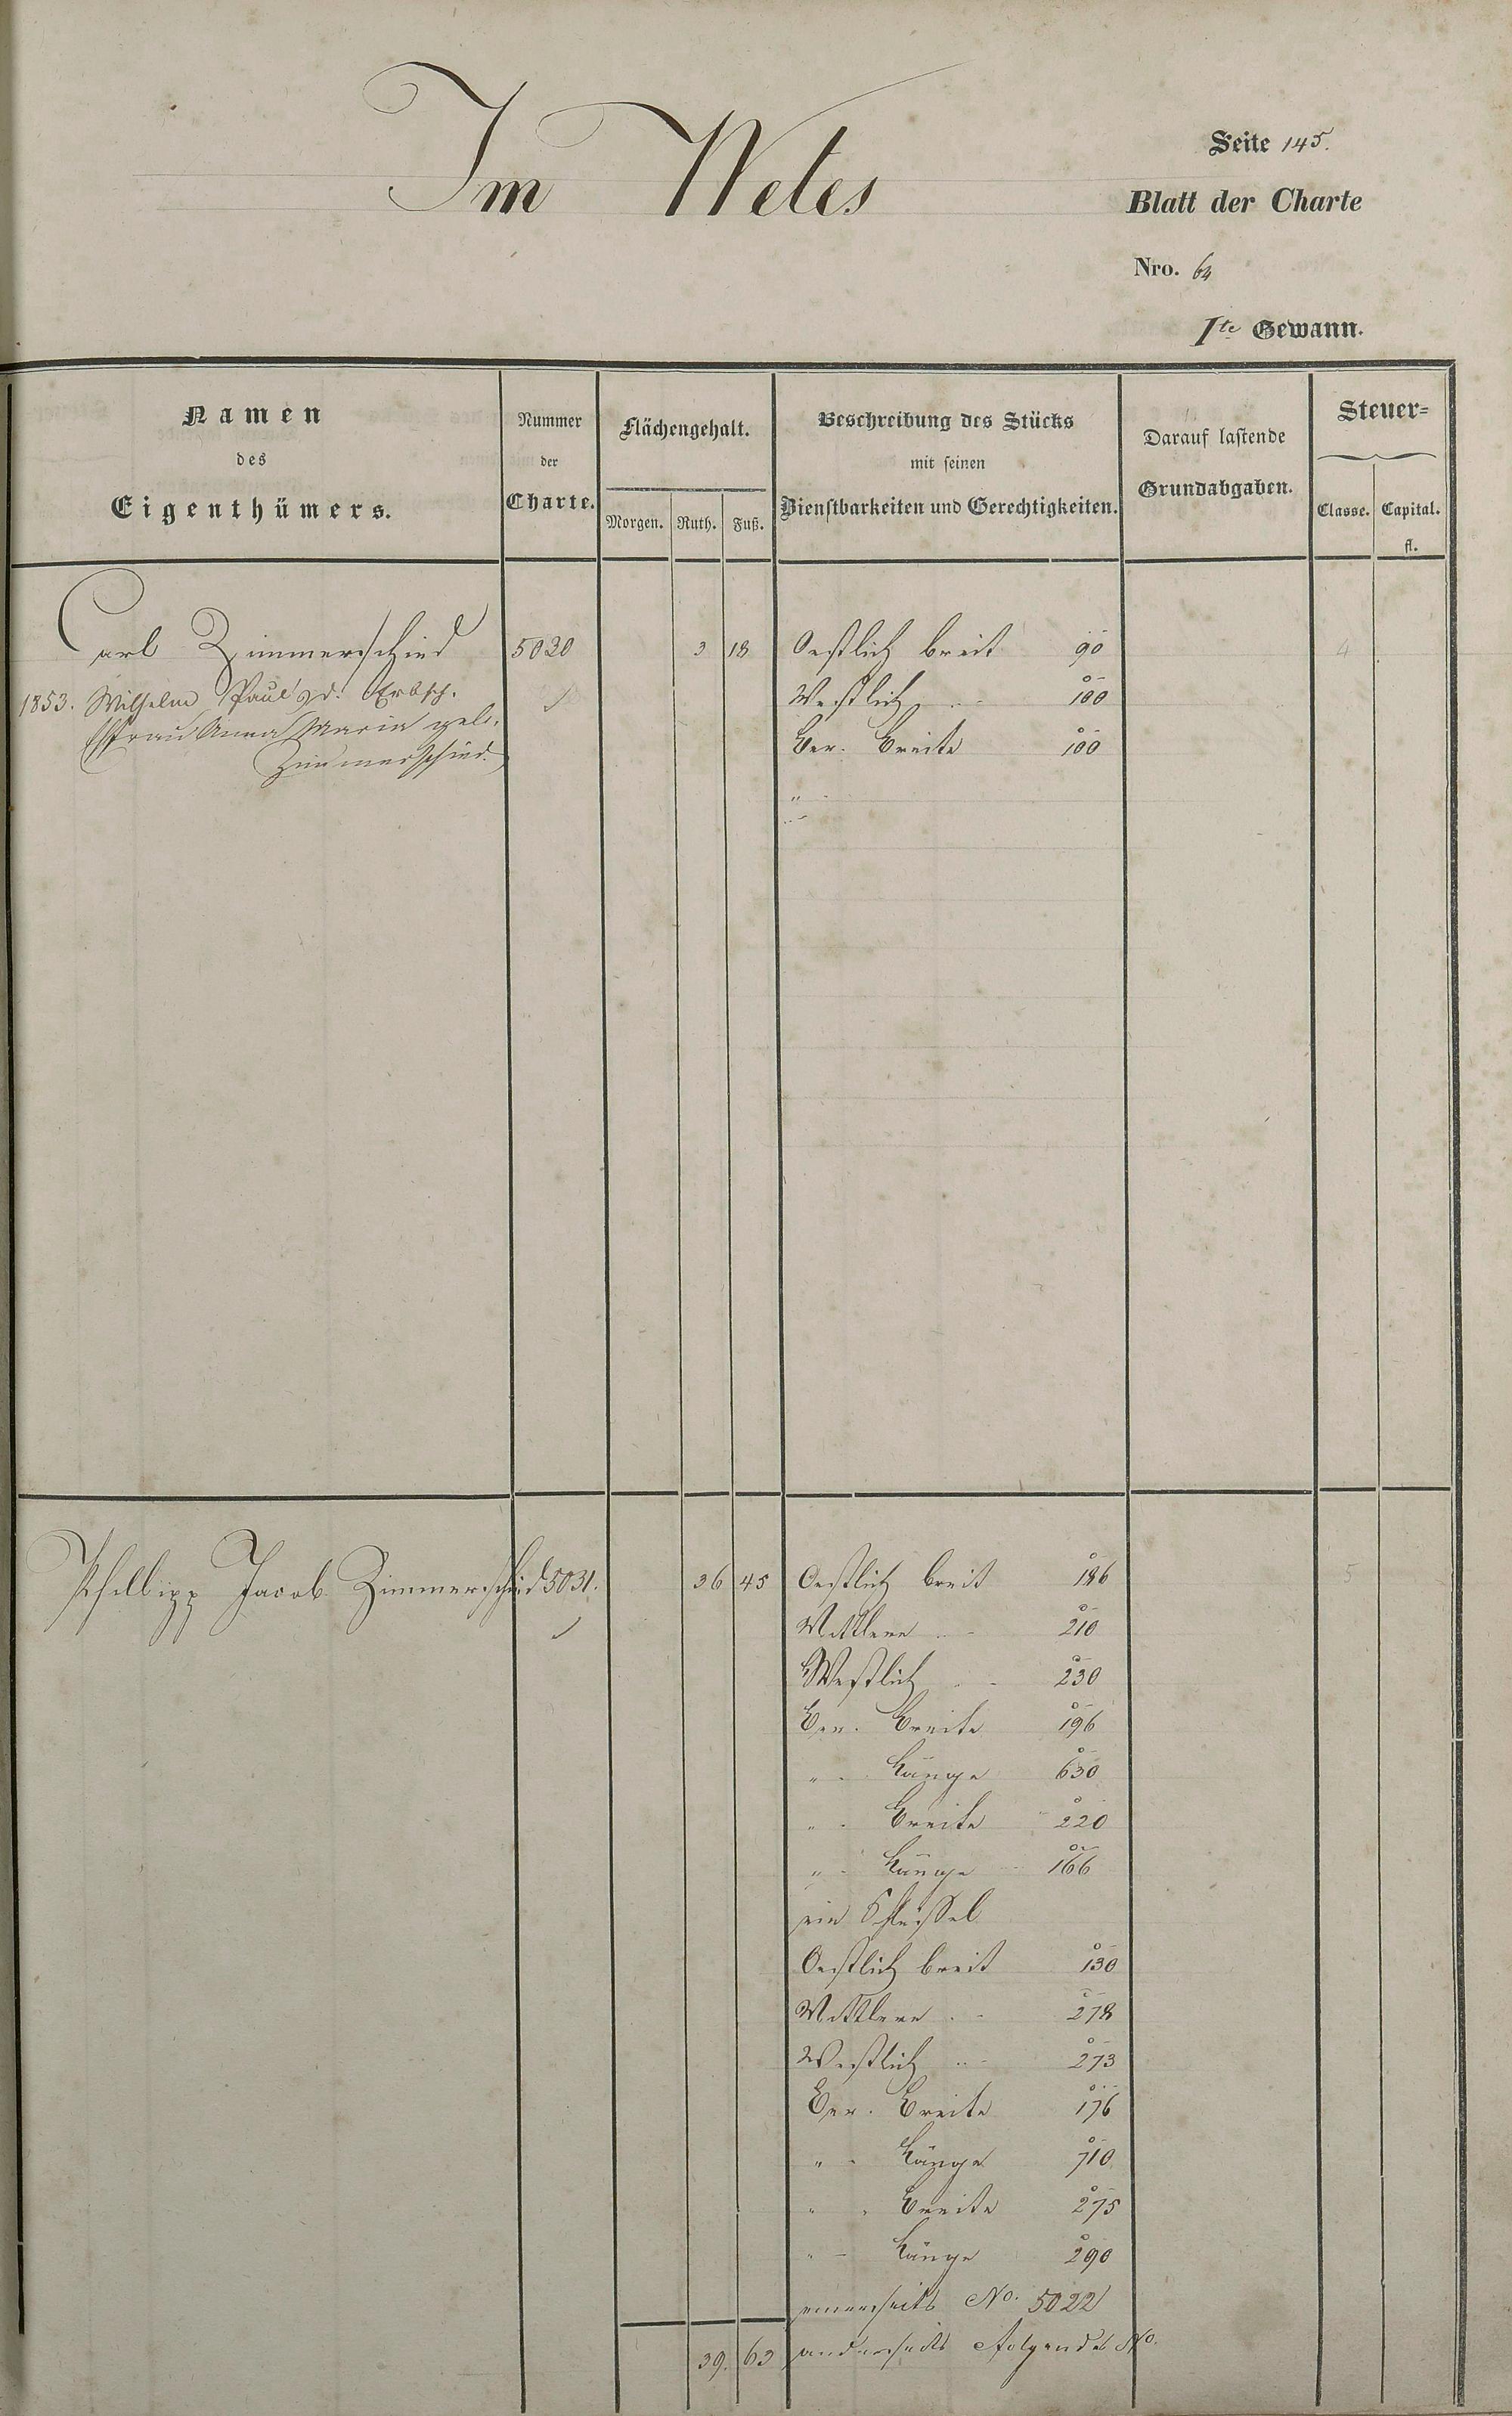 Im Wetes
Seite 145.
Blatt der Charte
Nro. 64
Ite Gewann.
Namen
des
Eigenthümers.
Nummer
der
Charte.
Flächengehalt.
Morgen. Ruth. Fuß.
Beschreibung des Stücks
mit seinen
Dienstbarkeiten und Gerechtigkeiten.
Darauf lastende
Grundabgaben.
Steuer-
Classe. Capital.
fl.
Carl Zimmerschied 5030 3 18 Oestlich breit 90 4
1853. Wilhelm Paul 2r d. Erbsch. Westlich " - 100
(Ehefrau Anna Maria geb. Ver. Breite 100
Zimmerschied.)
" -
Philipp Jacob Zimmerschied 5031. 36 45 Oestlich breit 186 5
Mittlere " - 210
Westlich " - 230
Ver. Breite 196
" - Länge 630
" - Breite 220
" - Länge 166
ein
Oestlich breit 130
Mittlere " - 278
Westlich " - 273
Ver. Breite 176
" - Länge 710
" " Breite 275
" - Länge 290
einerseits No. 5022
39. 63 anderseits folgendes No.